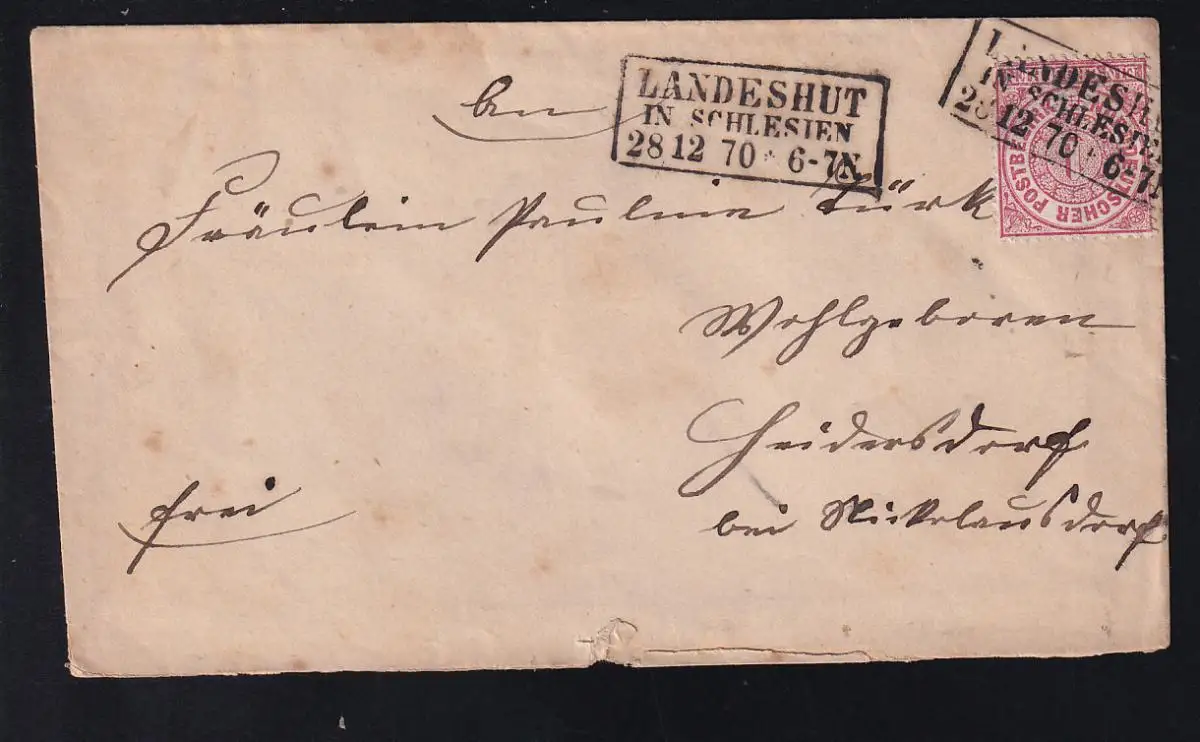 An
LANDESHUT
IN SCHLESIEN
28 12 70 * 6-7N
LANDESHUT
IN SCHLESIEN
28 12 70 * 6-7N
NORDDEUTSCHER POSTBEZIRK
Fräulein Pauline Türk
Wohlgeboren
Heidersdorf
bei Nickolausdorf
frei